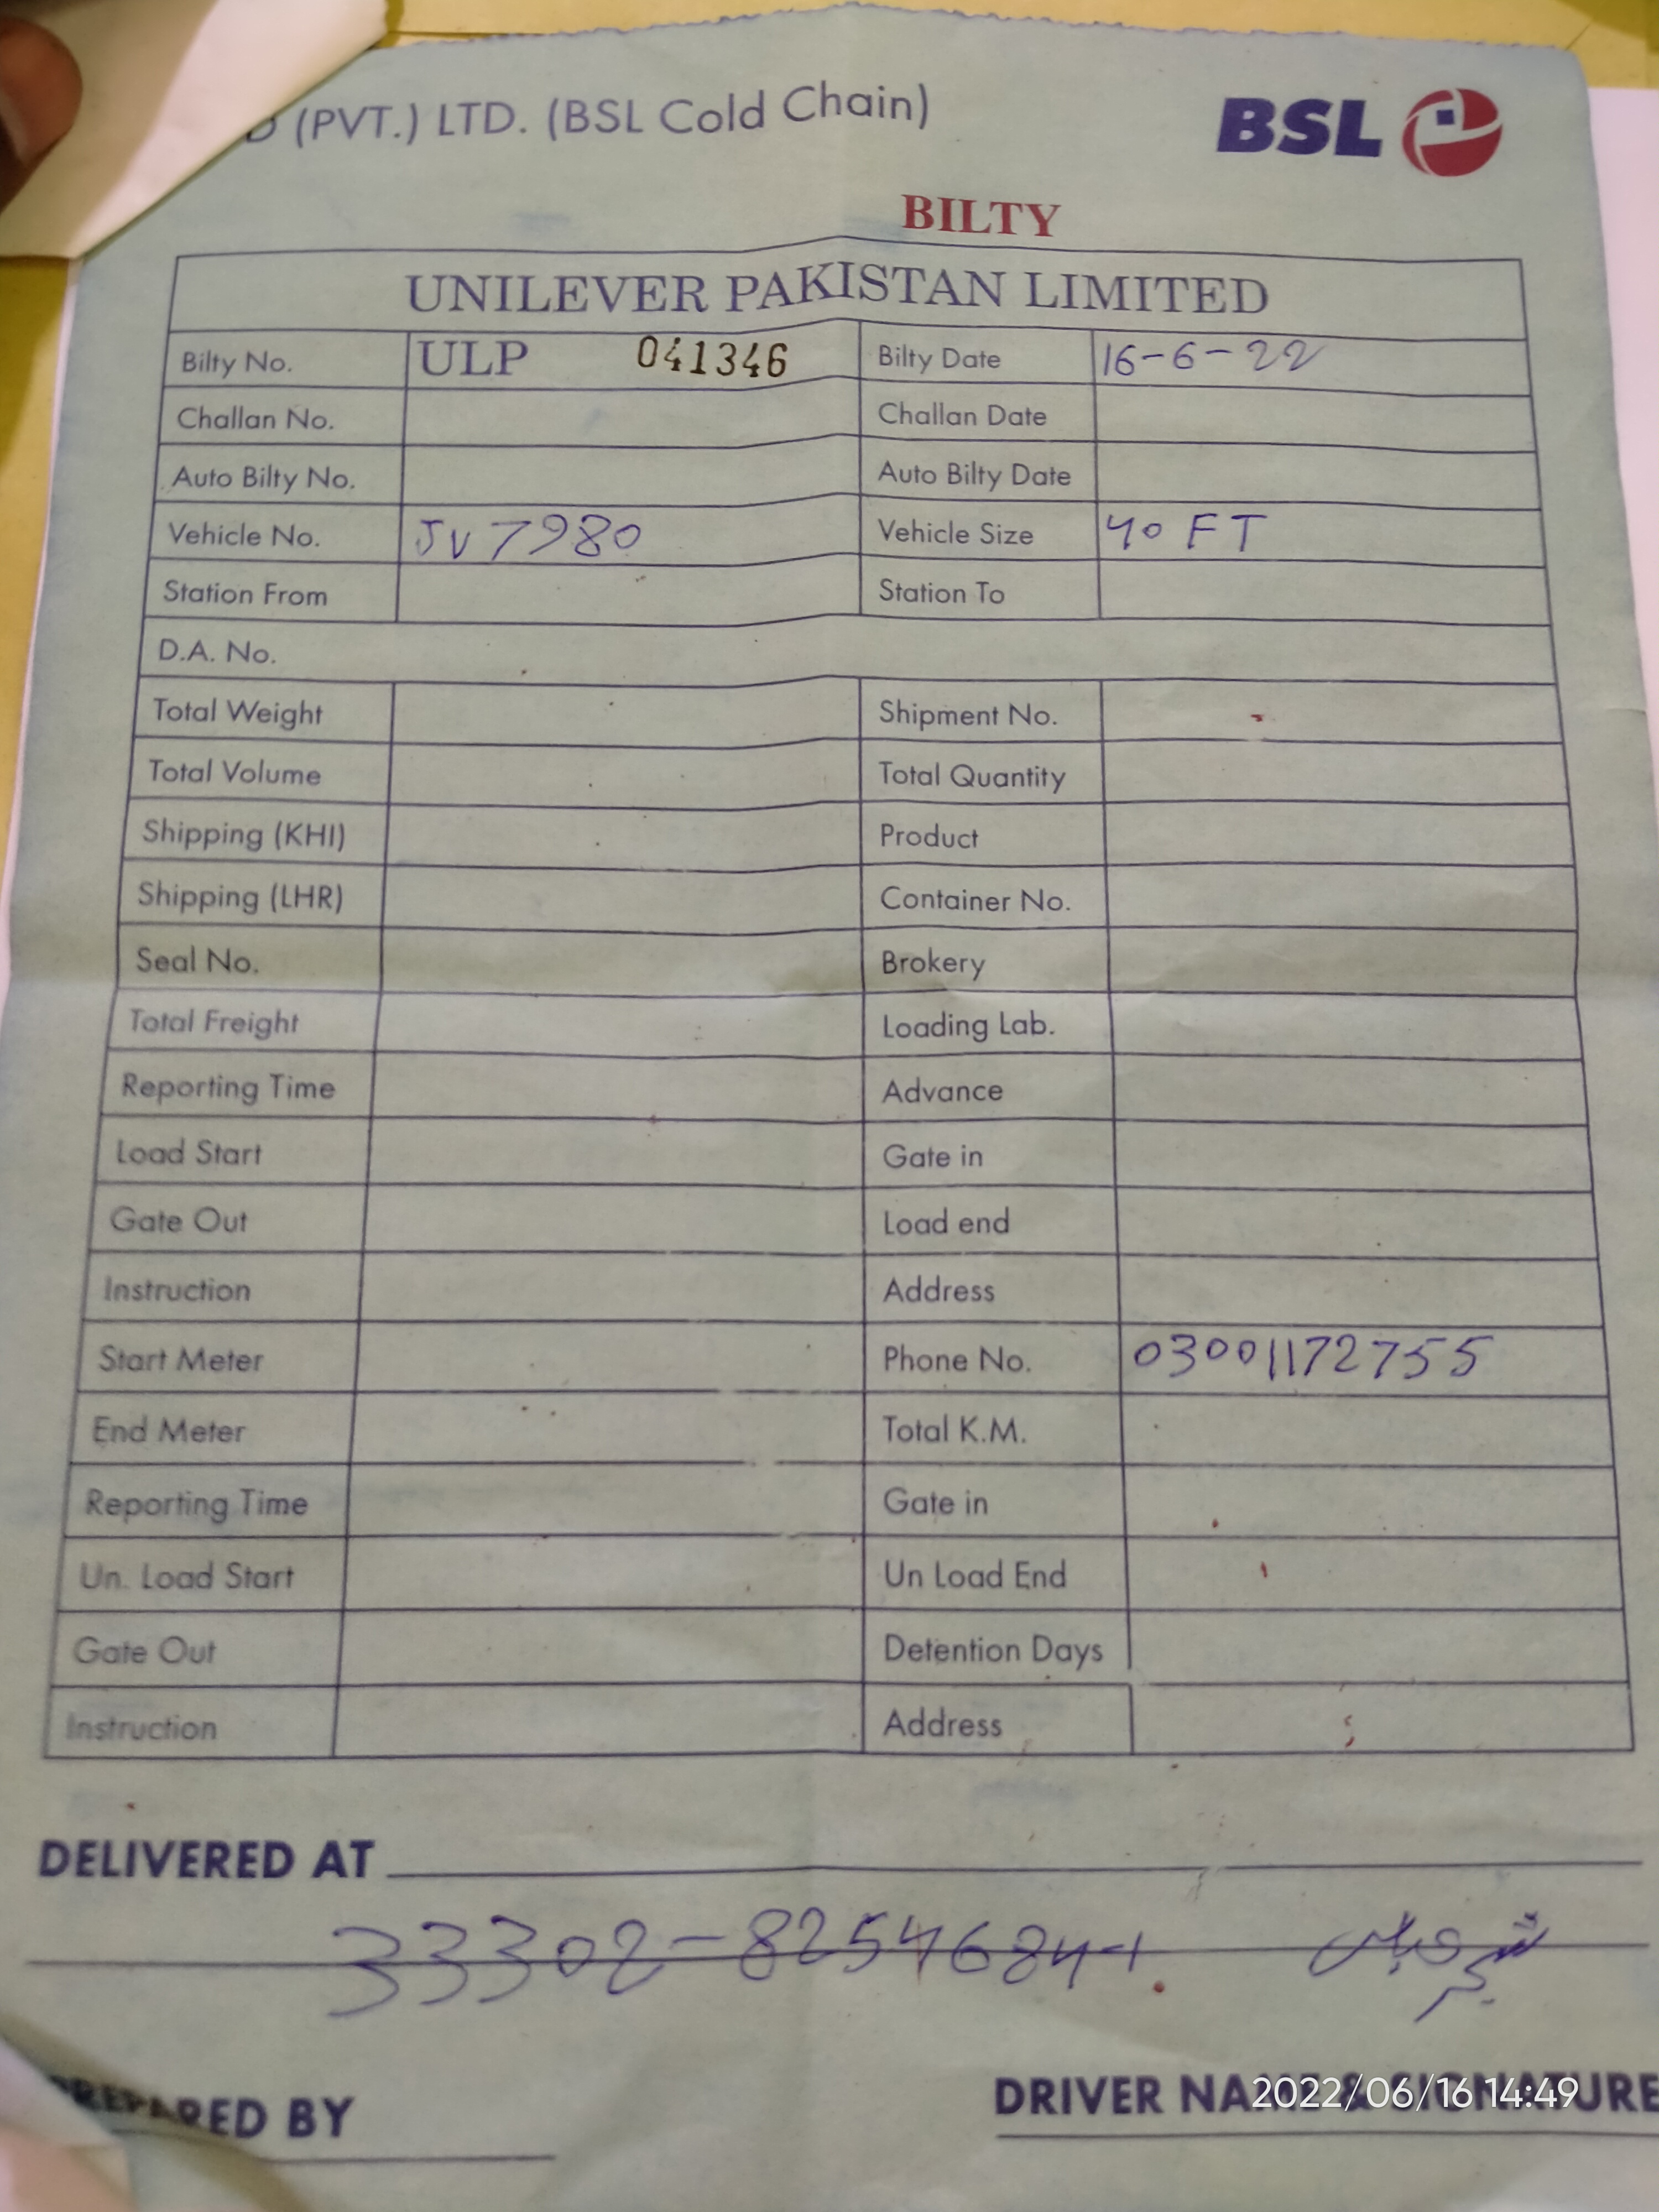 (PVT.) LTD. (BSL Cold Chain)
BSL
BILTY
UNILEVER PAKISTAN LIMITED
Bilty No. ULP 041346 Bilty Date 16-6-22
Challan No. Challan Date
Auto Bilty No. Auto Bilty Date
Vehicle No. JV 7980 Vehicle Size 40 FT
Station From Station To
D.A. No.
Total Weight Shipment No.
Total Volume Total Quantity
Shipping (KHI) Product
Shipping (LHR) Container No.
Seal No. Brokery
Total Freight Loading Lab.
Reporting Time Advance
Load Start Gate in
Gate Out Load end
Instruction Address
Start Meter Phone No. 03001172755
End Meter Total K.M.
Reporting Time Gate in
Un. Load Start Un Load End
Gate Out Detention Days
Instruction Address
DELIVERED AT
33302-8254684-1
PREPARED BY DRIVER NAME & SIGNATURE
2022/06/16 14:49